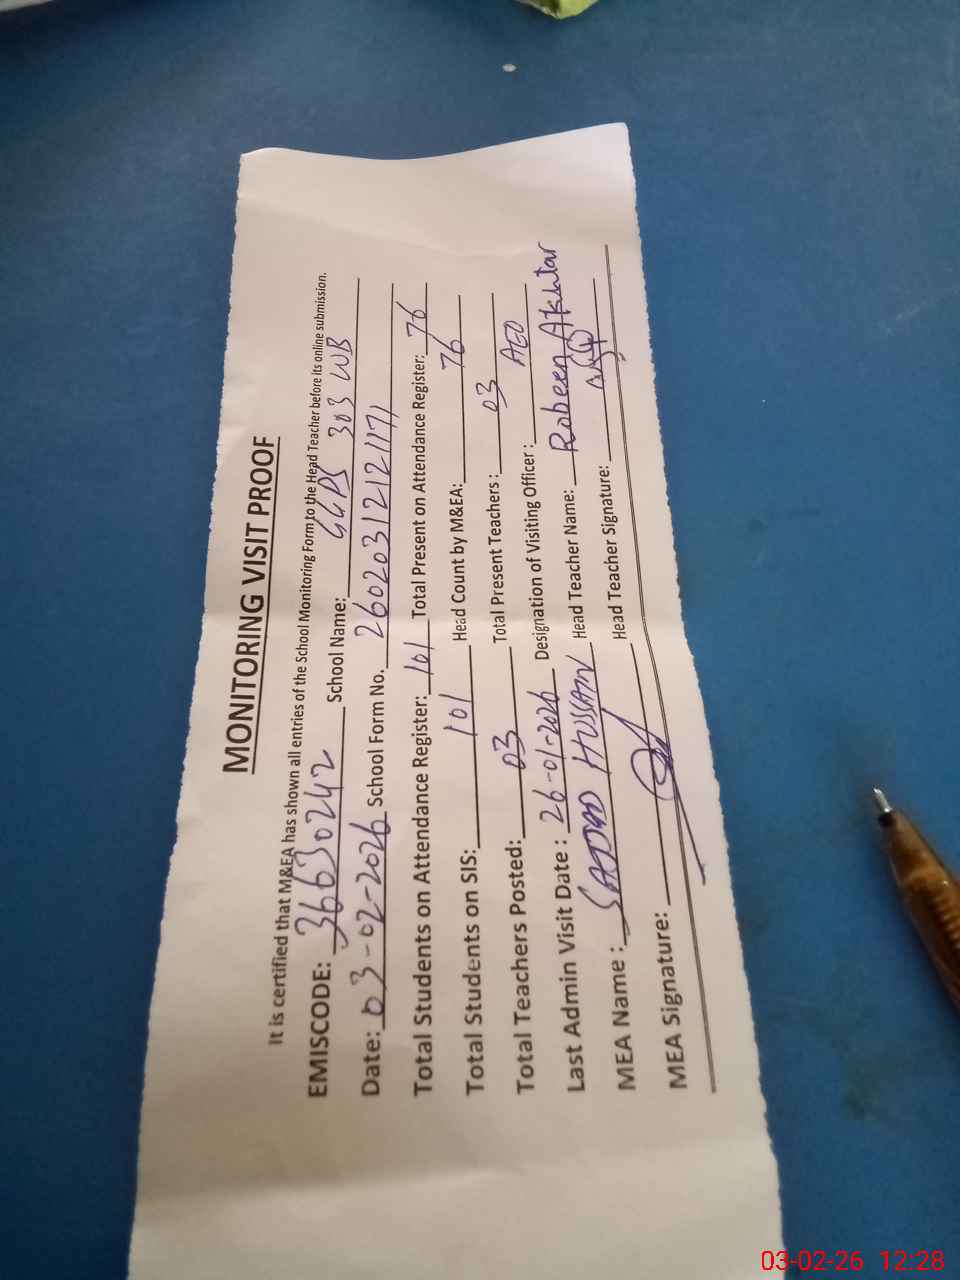 MONITORING VISIT PROOF
It is certified that M&EA has shown all entries of the School Monitoring Form to the Head Teacher before its online submission.
EMISCODE: 36630242 School Name: GGPS 303 WB
Date: 03-02-2026 School Form No. 260203121211171
Total Students on Attendance Register: 101 Total Present on Attendance Register: 76
Total Students on SIS: 101 Head Count by M&EA: 76
Total Teachers Posted: 03 Total Present Teachers : 03
Last Admin Visit Date : 26-01-2026 Designation of Visiting Officer : AEO
MEA Name : SAJJAD HUSSAIN Head Teacher Name: Robeen Akhtar
MEA Signature: Head Teacher Signature:
03-02-26 12:28